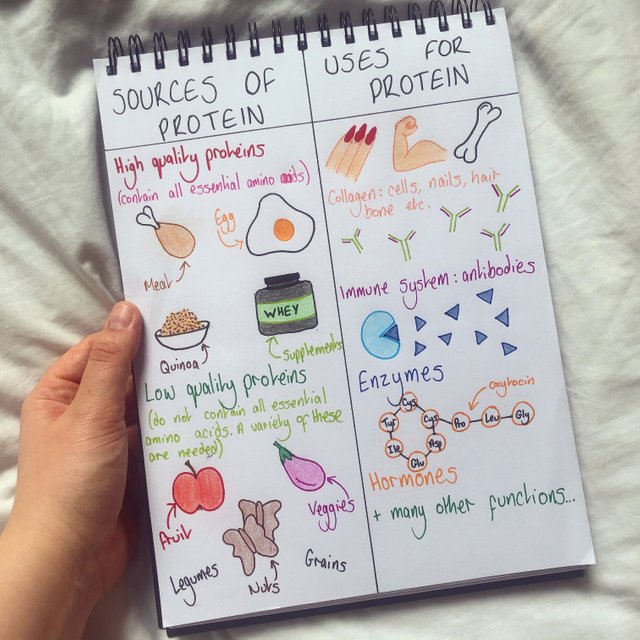 SOURCES OF
PROTEIN
High quality proteins
(contain all essential amino acids)
Egg
Meat
WHEY
Quinoa
Supplements
Low quality proteins
(do not contain all essential
amino acids. A variety of these
are needed)
Fruit
Veggies
Legumes
Nuts
Grains
USES FOR
PROTEIN
Collagen: cells, nails, hair
bone etc.
Immune system: antibodies
Enzymes
oxytocin
Cys
Tyr
Cys
Pro
Leu
Gly
Ile
Asp
Glu
Hormones
+ many other functions...